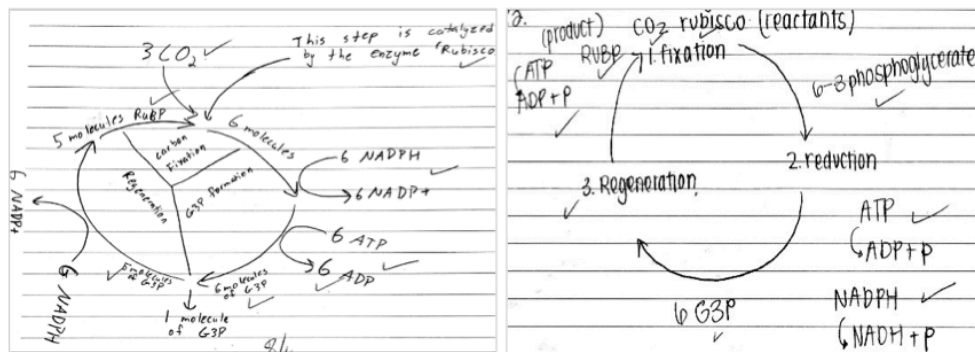 3CO₂
This step is catalyzed
by the enzyme Rubisco
5 molecules RuBP
6 molecules
carbon
Fixation
Regeneration
G3P formation
6 NADPH
6 NADP+
6 ATP
6 ADP
6 NADP+
6 NADPH
5 molecules
of G3P
6 molecules
of G3P
1 molecule
of G3P
2.
(product)
CO₂ rubisco (reactants)
RUBP
1. fixation
ATP
ADP+P
6-3phosphoglycerate
2. reduction
3. Regeneration
ATP
ADP+P
6 G3P
NADPH
NADH+P